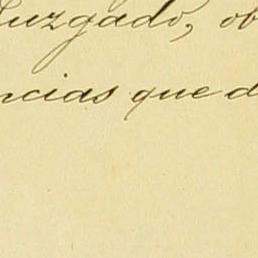 Juzgado, ob
ncias que d